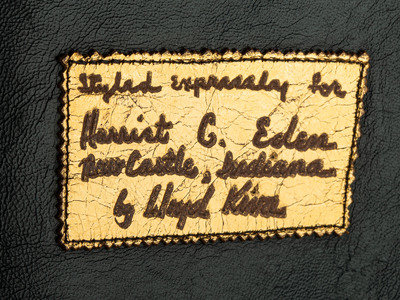 Styled expressly for
Harriet C. Eden
New Castle, Indiana
by Lloyd Kiva